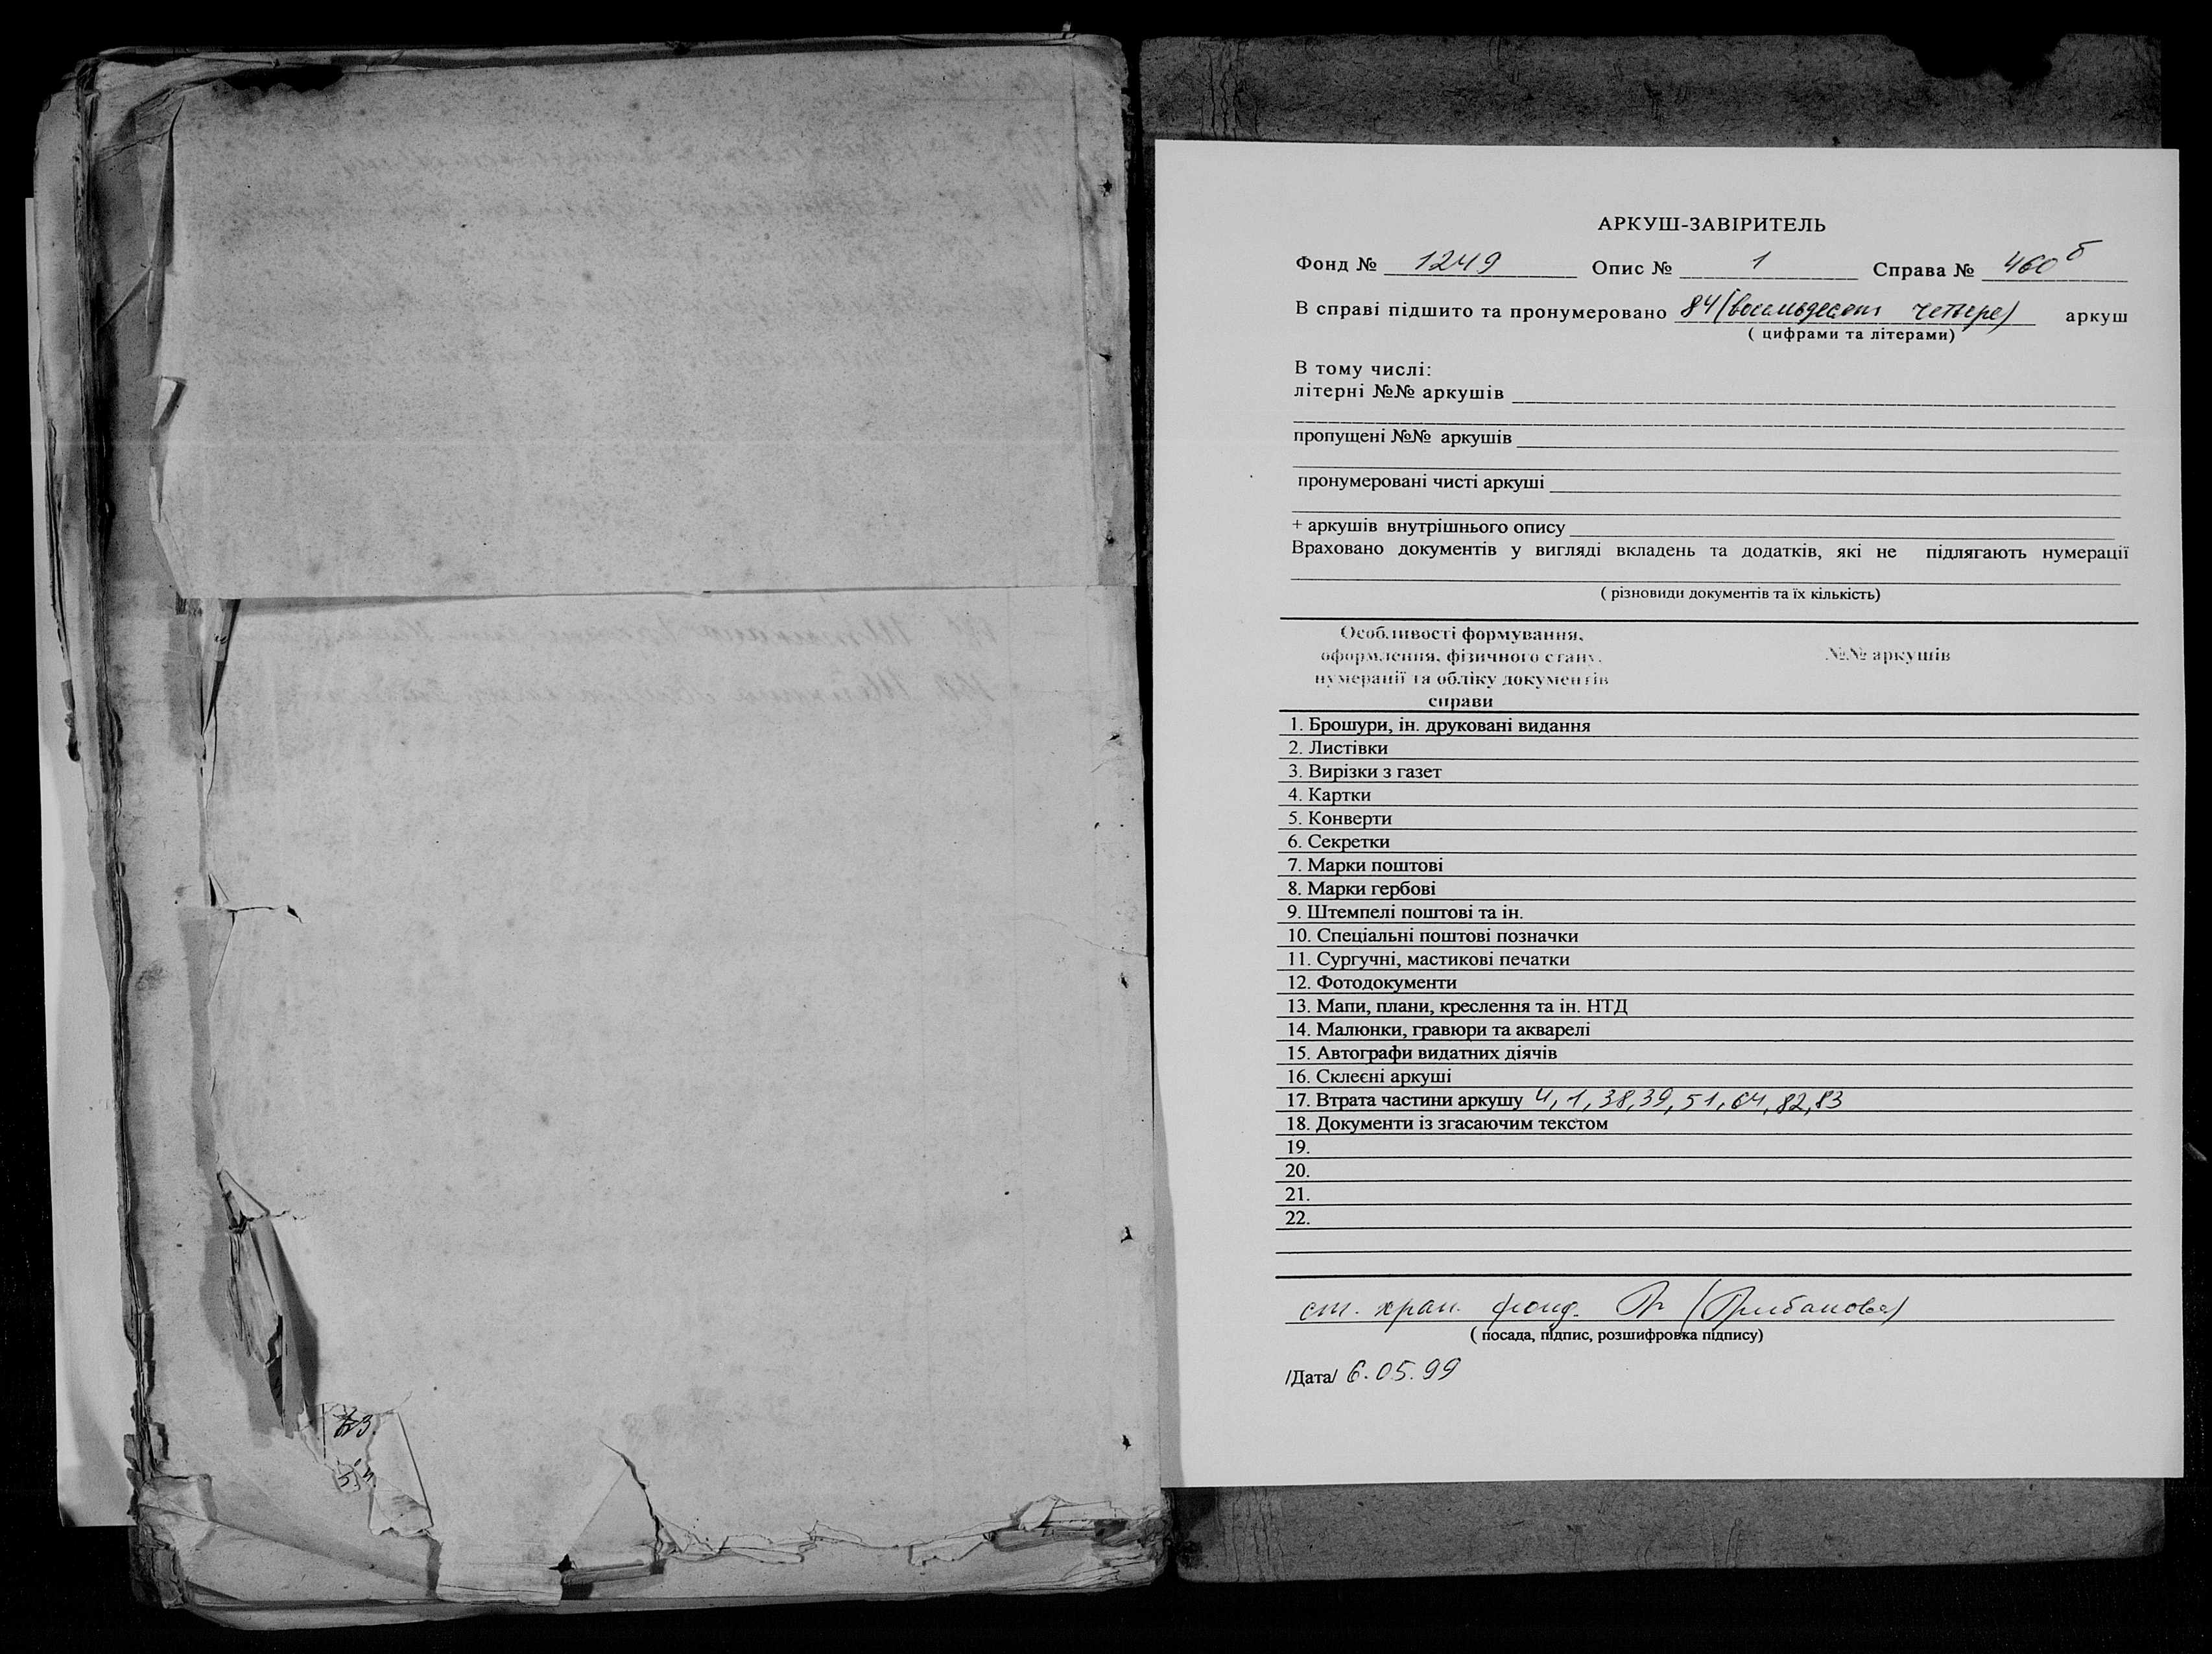 АРКУШ-ЗАВІРИТЕЛЬ
Фонд № 1249 Опис № 1 Справа № 460 б
В справі підшито та пронумеровано 84 (восемьдесят четыре) аркуш
( цифрами та літерами)
В тому числі:
літерні №№ аркушів
пропущені №№ аркушів
пронумеровані чисті аркуші
+ аркушів внутрішнього опису
Враховано документів у вигляді вкладень та додатків, які не підлягають нумерації
( різновиди документів та їх кількість)
Особливості формування, №№ аркушів
оформлення, фізичного стану,
нумерації та обліку документів
справи
1. Брошури, ін. друковані видання
2. Листівки
3. Вирізки з газет
4. Картки
5. Конверти
6. Секретки
7. Марки поштові
8. Марки гербові
9. Штемпелі поштові та ін.
10. Спеціальні поштові позначки
11. Сургучні, мастикові печатки
12. Фотодокументи
13. Мапи, плани, креслення та ін. НТД
14. Малюнки, гравюри та акварелі
15. Автографи видатних діячів
16. Склеєні аркуші
17. Втрата частини аркушу 4, 1, 38, 39, 51, 64, 82, 83
18. Документи із згасаючим текстом
19.
20.
21.
22.
ст. хран. фонд. (Грибанова)
( посада, підпис, розшифровка підпису)
/Дата/ 6.05.99